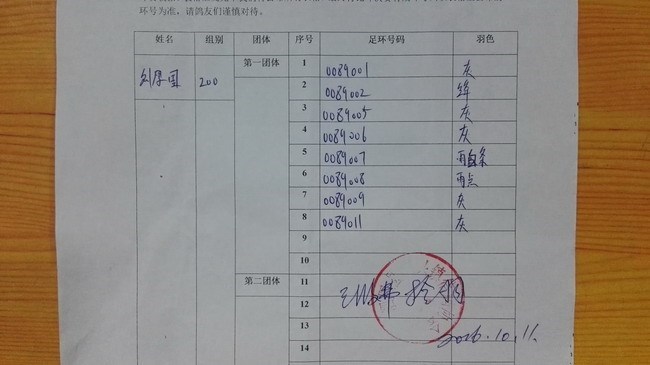 环号为准。请鸽友们谨慎对待。
姓名 组别 团体 序号 足环号码 羽色
刘厚国 200 第一团体 1 0089001 灰
2 0089002 绛
3 0089005 灰
4 0089006 灰
5 0089007 雨白条
6 0089008 雨点
7 0089009 灰
8 0089011 灰
9
10
第二团体 11
12
13
2016.10.11.
14